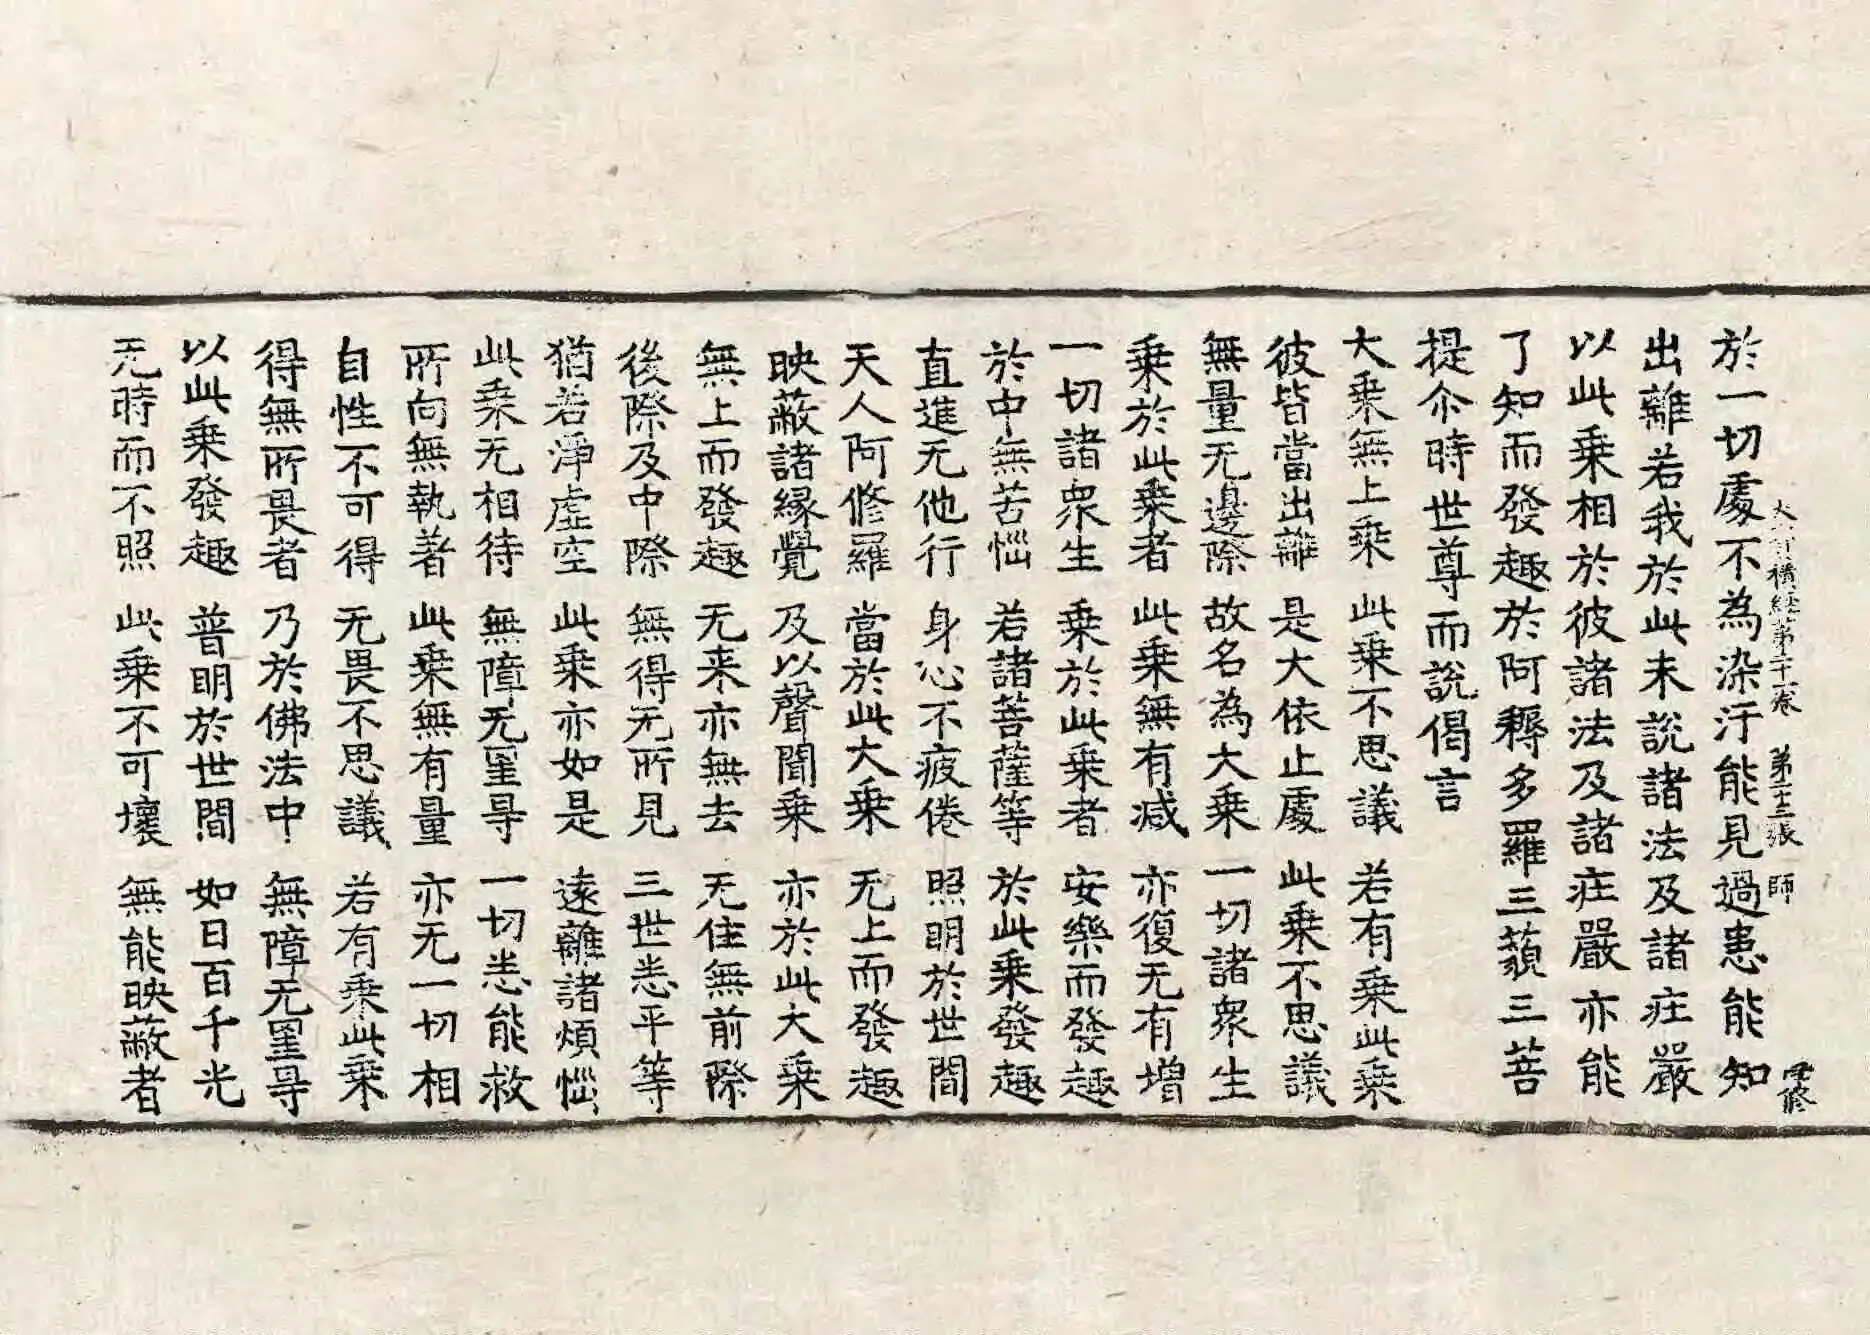 大寶積經第二十一卷 第十三張 師
於一切處不為染汙能見過患能知
出離若我於此未說諸法及諸庄嚴
以此乗相於彼諸法及諸庄嚴亦能
了知而發趣於阿耨多羅三藐三菩
提尒時世尊而說偈言
大乗無上乗 此乗不思議 若有乗此乗
彼皆當出離 是大依止處 此乗不思議
無量无邊際 故名為大乗 一切諸衆生
乗於此乗者 此乗無有減 亦復无有增
一切諸衆生 乗於此乗者 安樂而發趣
於中無苦惱 若諸菩薩等 於此乗發趣
直進无他行 身心不疲倦 照明於世間
天人阿修羅 當於此大乗 无上而發趣
映蔽諸緣覺 及以聲聞乗 亦於此大乗
無上而發趣 无来亦無去 无住無前際
後際及中際 無得无所見 三世悉平等
猶若淨虛空 此乗亦如是 遠離諸煩惱
此乗无相待 無障无罣㝵 一切悉能救
所向無執著 此乗無有量 亦无一切相
自性不可得 无畏不思議 若有乗此乗
得無所畏者 乃於佛法中 無障无罣㝵
以此乗發趣 普明於世間 如日百千光
无時而不照 此乗不可壞 無能映蔽者